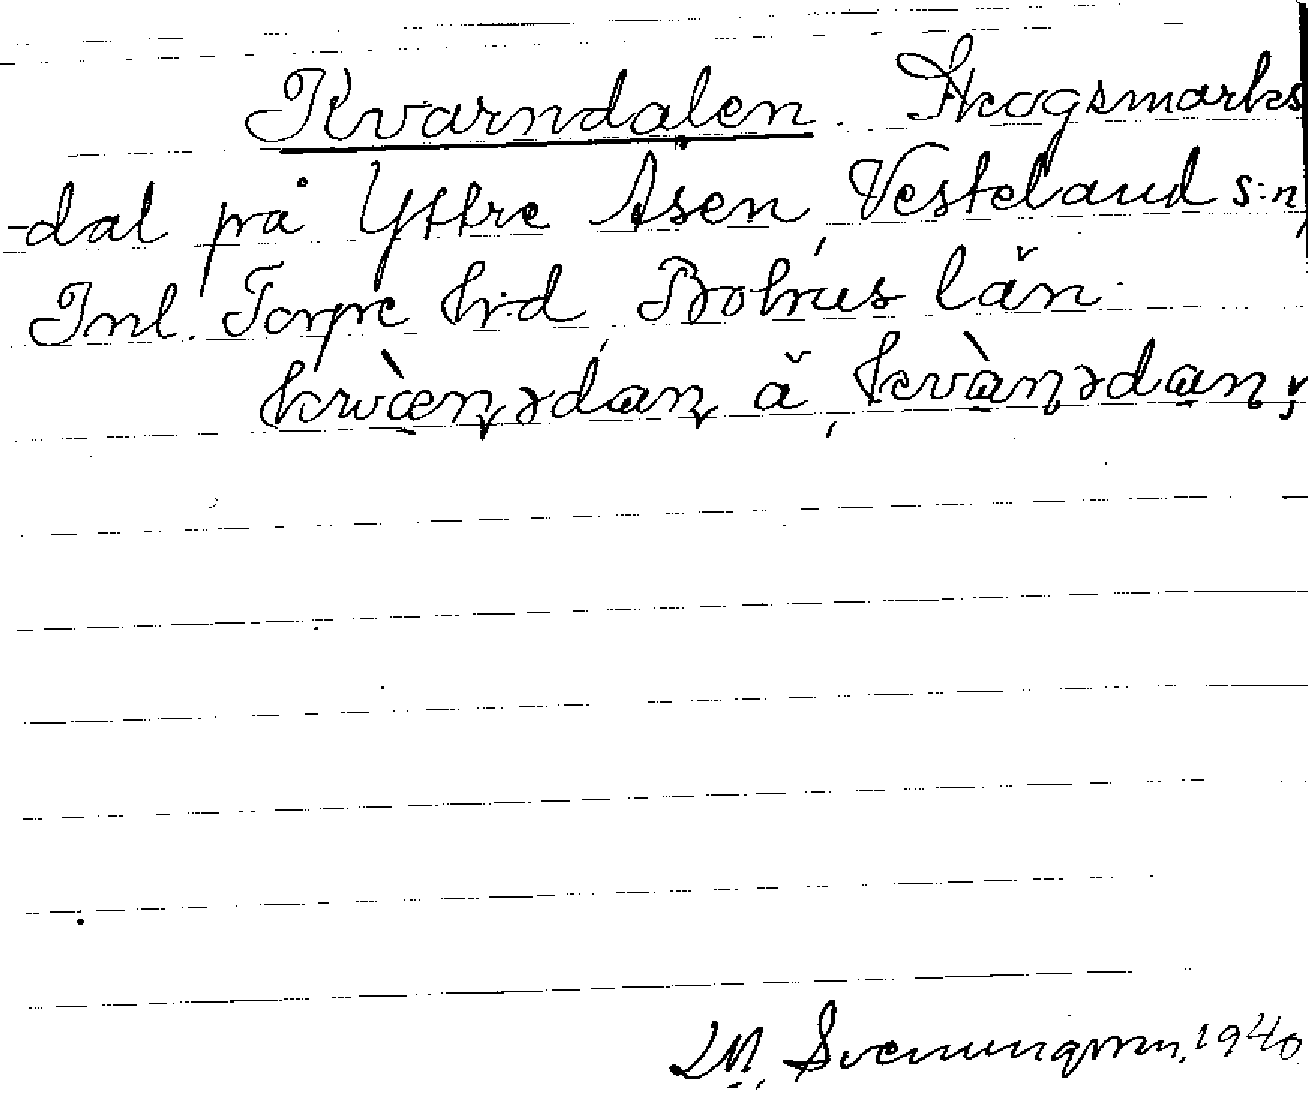 Kvarndalen. Skogsmarks
-dal på Yttre Åsen, Vesteland s:n,
Inl. Torpe h:d, Bohus län.
kvæ̀ṇədaṇ ă, kvàṇədaṇ;
M. Svenungsson, 1940